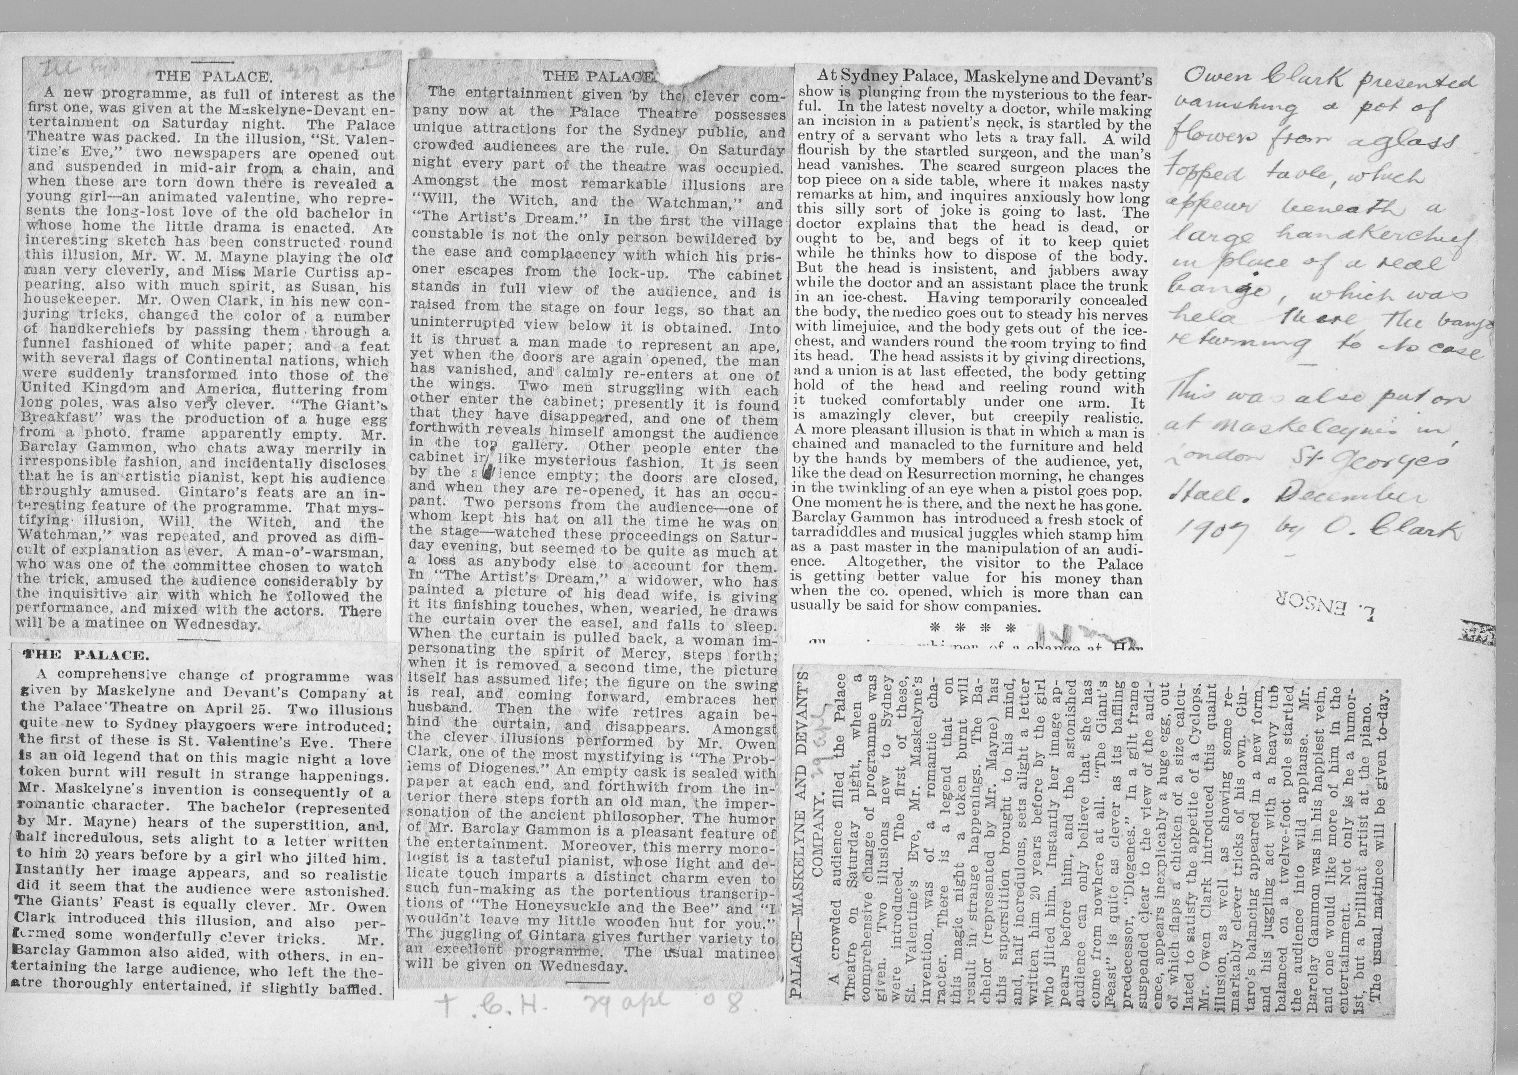 THE PALACE.
A new programme, as full of interest as the
first one, was given at the Maskelyne-Devant en-
tertainment on Saturday night. The Palace
Theatre was packed. In the illusion, "St. Valen-
tine's Eve," two newspapers are opened out
and suspended in mid-air from a chain, and
when these are torn down there is revealed a
young girl—an animated valentine, who repre-
sents the long-lost love of the old bachelor in
whose home the little drama is enacted. An
interesting sketch has been constructed round
this illusion, Mr. W. M. Mayne playing the old
man very cleverly, and Miss Marie Curtiss ap-
pearing, also with much spirit, as Susan, his
housekeeper. Mr. Owen Clark, in his new con-
juring tricks, changed the color of a number
of handkerchiefs by passing them through a
funnel fashioned of white paper; and a feat
with several flags of Continental nations, which
were suddenly transformed into those of the
United Kingdom and America, fluttering from
long poles, was also very clever. "The Giant's
Breakfast" was the production of a huge egg
from a photo. frame apparently empty. Mr.
Barclay Gammon, who chats away merrily in
irresponsible fashion, and incidentally discloses
that he is an artistic pianist, kept his audience
throughly amused. Gintaro's feats are an in-
teresting feature of the programme. That mys-
tifying illusion, Will, the Witch, and the
Watchman," was repeated, and proved as diffi-
cult of explanation as ever. A man-o'-warsman,
who was one of the committee chosen to watch
the trick, amused the audience considerably by
the inquisitive air with which he followed the
performance, and mixed with the actors. There
will be a matinee on Wednesday.
THE PALACE.
A comprehensive change of programme was
given by Maskelyne and Devant's Company at
the Palace Theatre on April 25. Two illusions
quite new to Sydney playgoers were introduced;
the first of these is St. Valentine's Eve. There
is an old legend that on this magic night a love
token burnt will result in strange happenings.
Mr. Maskelyne's invention is consequently of a
romantic character. The bachelor (represented
by Mr. Mayne) hears of the superstition, and,
half incredulous, sets alight to a letter written
to him 20 years before by a girl who jilted him.
Instantly her image appears, and so realistic
did it seem that the audience were astonished.
The Giants' Feast is equally clever. Mr. Owen
Clark introduced this illusion, and also per-
formed some wonderfully clever tricks. Mr.
Barclay Gammon also aided, with others, in en-
tertaining the large audience, who left the the-
atre thoroughly entertained, if slightly baffled.
THE PALACE.
The entertainment given by the clever com-
pany now at the Palace Theatre possesses
unique attractions for the Sydney public, and
crowded audiences are the rule. On Saturday
night every part of the theatre was occupied.
Amongst the most remarkable illusions are
"Will, the Witch, and the Watchman," and
"The Artist's Dream." In the first the village
constable is not the only person bewildered by
the ease and complacency with which his pris-
oner escapes from the lock-up. The cabinet
stands in full view of the audience, and is
raised from the stage on four legs, so that an
uninterrupted view below it is obtained. Into
it is thrust a man made to represent an ape,
yet when the doors are again opened, the man
has vanished, and calmly re-enters at one of
the wings. Two men struggling with each
other enter the cabinet; presently it is found
that they have disappeared, and one of them
forthwith reveals himself amongst the audience
in the top gallery. Other people enter the
cabinet in like mysterious fashion. It is seen
by the audience empty; the doors are closed,
and when they are re-opened, it has an occu-
pant. Two persons from the audience—one of
whom kept his hat on all the time he was on
the stage—watched these proceedings on Satur-
day evening, but seemed to be quite as much at
a loss as anybody else to account for them.
In "The Artist's Dream," a widower, who has
painted a picture of his dead wife, is giving
it its finishing touches, when, wearied, he draws
the curtain over the easel, and falls to sleep.
When the curtain is pulled back, a woman im-
personating the spirit of Mercy, steps forth;
when it is removed a second time, the picture
itself has assumed life; the figure on the swing
is real, and coming forward, embraces her
husband. Then the wife retires again be-
hind the curtain, and disappears. Amongst
the clever illusions performed by Mr. Owen
Clark, one of the most mystifying is "The Prob-
lems of Diogenes." An empty cask is sealed with
paper at each end, and forthwith from the in-
terior there steps forth an old man, the imper-
sonation of the ancient philosopher. The humor
of Mr. Barclay Gammon is a pleasant feature of
the entertainment. Moreover, this merry mono-
logist is a tasteful pianist, whose light and de-
licate touch imparts a distinct charm even to
such fun-making as the portentous transcrip-
tions of "The Honeysuckle and the Bee" and "I
wouldn't leave my little wooden hut for you."
The juggling of Gintara gives further variety to
an excellent programme. The usual matinee
will be given on Wednesday.
T. C. H. 29 apl 08.
At Sydney Palace, Maskelyne and Devant's
show is plunging from the mysterious to the fear-
ful. In the latest novelty a doctor, while making
an incision in a patient's neck, is startled by the
entry of a servant who lets a tray fall. A wild
flourish by the startled surgeon, and the man's
head vanishes. The scared surgeon places the
top piece on a side table, where it makes nasty
remarks at him, and inquires anxiously how long
this silly sort of joke is going to last. The
doctor explains that the head is dead, or
ought to be, and begs of it to keep quiet
while he thinks how to dispose of the body.
But the head is insistent, and jabbers away
while the doctor and an assistant place the trunk
in an ice-chest. Having temporarily concealed
the body, the medico goes out to steady his nerves
with limejuice, and the body gets out of the ice-
chest, and wanders round the room trying to find
its head. The head assists it by giving directions,
and a union is at last effected, the body getting
hold of the head and reeling round with
it tucked comfortably under one arm. It
is amazingly clever, but creepily realistic.
A more pleasant illusion is that in which a man is
chained and manacled to the furniture and held
by the hands by members of the audience, yet,
like the dead on Resurrection morning, he changes
in the twinkling of an eye when a pistol goes pop.
One moment he is there, and the next he has gone.
Barclay Gammon has introduced a fresh stock of
tarradiddles and musical juggles which stamp him
as a past master in the manipulation of an audi-
ence. Altogether, the visitor to the Palace
is getting better value for his money than
when the co. opened, which is more than can
usually be said for show companies.
* * * *
PALACE—MASKELYNE AND DEVANT'S
COMPANY. 29 apl
A crowded audience filled the Palace
Theatre on Saturday night, when a
comprehensive change of programme was
given. Two illusions new to Sydney
were introduced. The first of these,
St. Valentine's Eve, Mr. Maskelyne's
invention, was of a romantic cha-
racter. There is a legend that on
this magic night a token burnt will
result in strange happenings. The Ba-
chelor (represented by Mr. Mayne) has
this superstition brought to his mind,
and, half incredulous, sets alight a letter
written him 20 years before by the girl
who jilted him. Instantly her image ap-
pears before him, and the astonished
audience can only believe that she has
come from nowhere at all. "The Giant's
Feast" is quite as clever as its baffling
predecessor, "Diogenes." In a gilt frame
suspended clear to the view of the audi-
ence, appears inexplicably a huge egg, out
of which flaps a chicken of a size calcu-
lated to satisfy the appetite of a Cyclops.
Mr. Owen Clark introduced this quaint
illusion, as well as showing some re-
markably clever tricks of his own. Gin-
taro's balancing appeared in a new form,
and his juggling act with a heavy tub
balanced on a twelve-foot pole startled
the audience into wild applause. Mr.
Barclay Gammon was in his happiest vein,
and one would like more of him in the
entertainment. Not only is he a humor-
ist, but a brilliant artist at the piano.
The usual matinee will be given to-day.
Owen Clark presented
vanishing a pot of
flowers from a glass
topped table, which
appear beneath a
large handkerchief
in place of a real
banjo, which was
held there the banjo
returning to its case
This was also put on
at Maskelaynes in
London St Georges
Hall. December
1907 by O. Clark
L. ENSOR